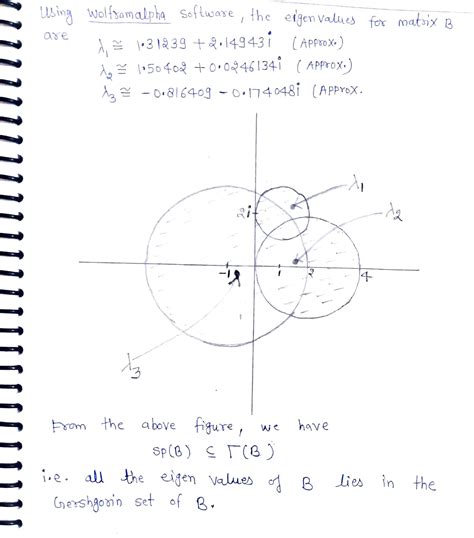 Using Wolframalpha software, the eigenvalues for matrix B
are
λ₁ ≅ 1.31239 + 2.14943i (Approx.)
λ₂ ≅ 1.50402 + 0.0246134i (Approx.)
λ₃ ≅ -0.816409 - 0.174048i (Approx.
λ₁
2i
λ₂
-1 1 2 4
λ₃
From the above figure, we have
Sp(B) ⊆ Γ(B)
i.e. all the eigen values of B lies in the
Gershgorin set of B.